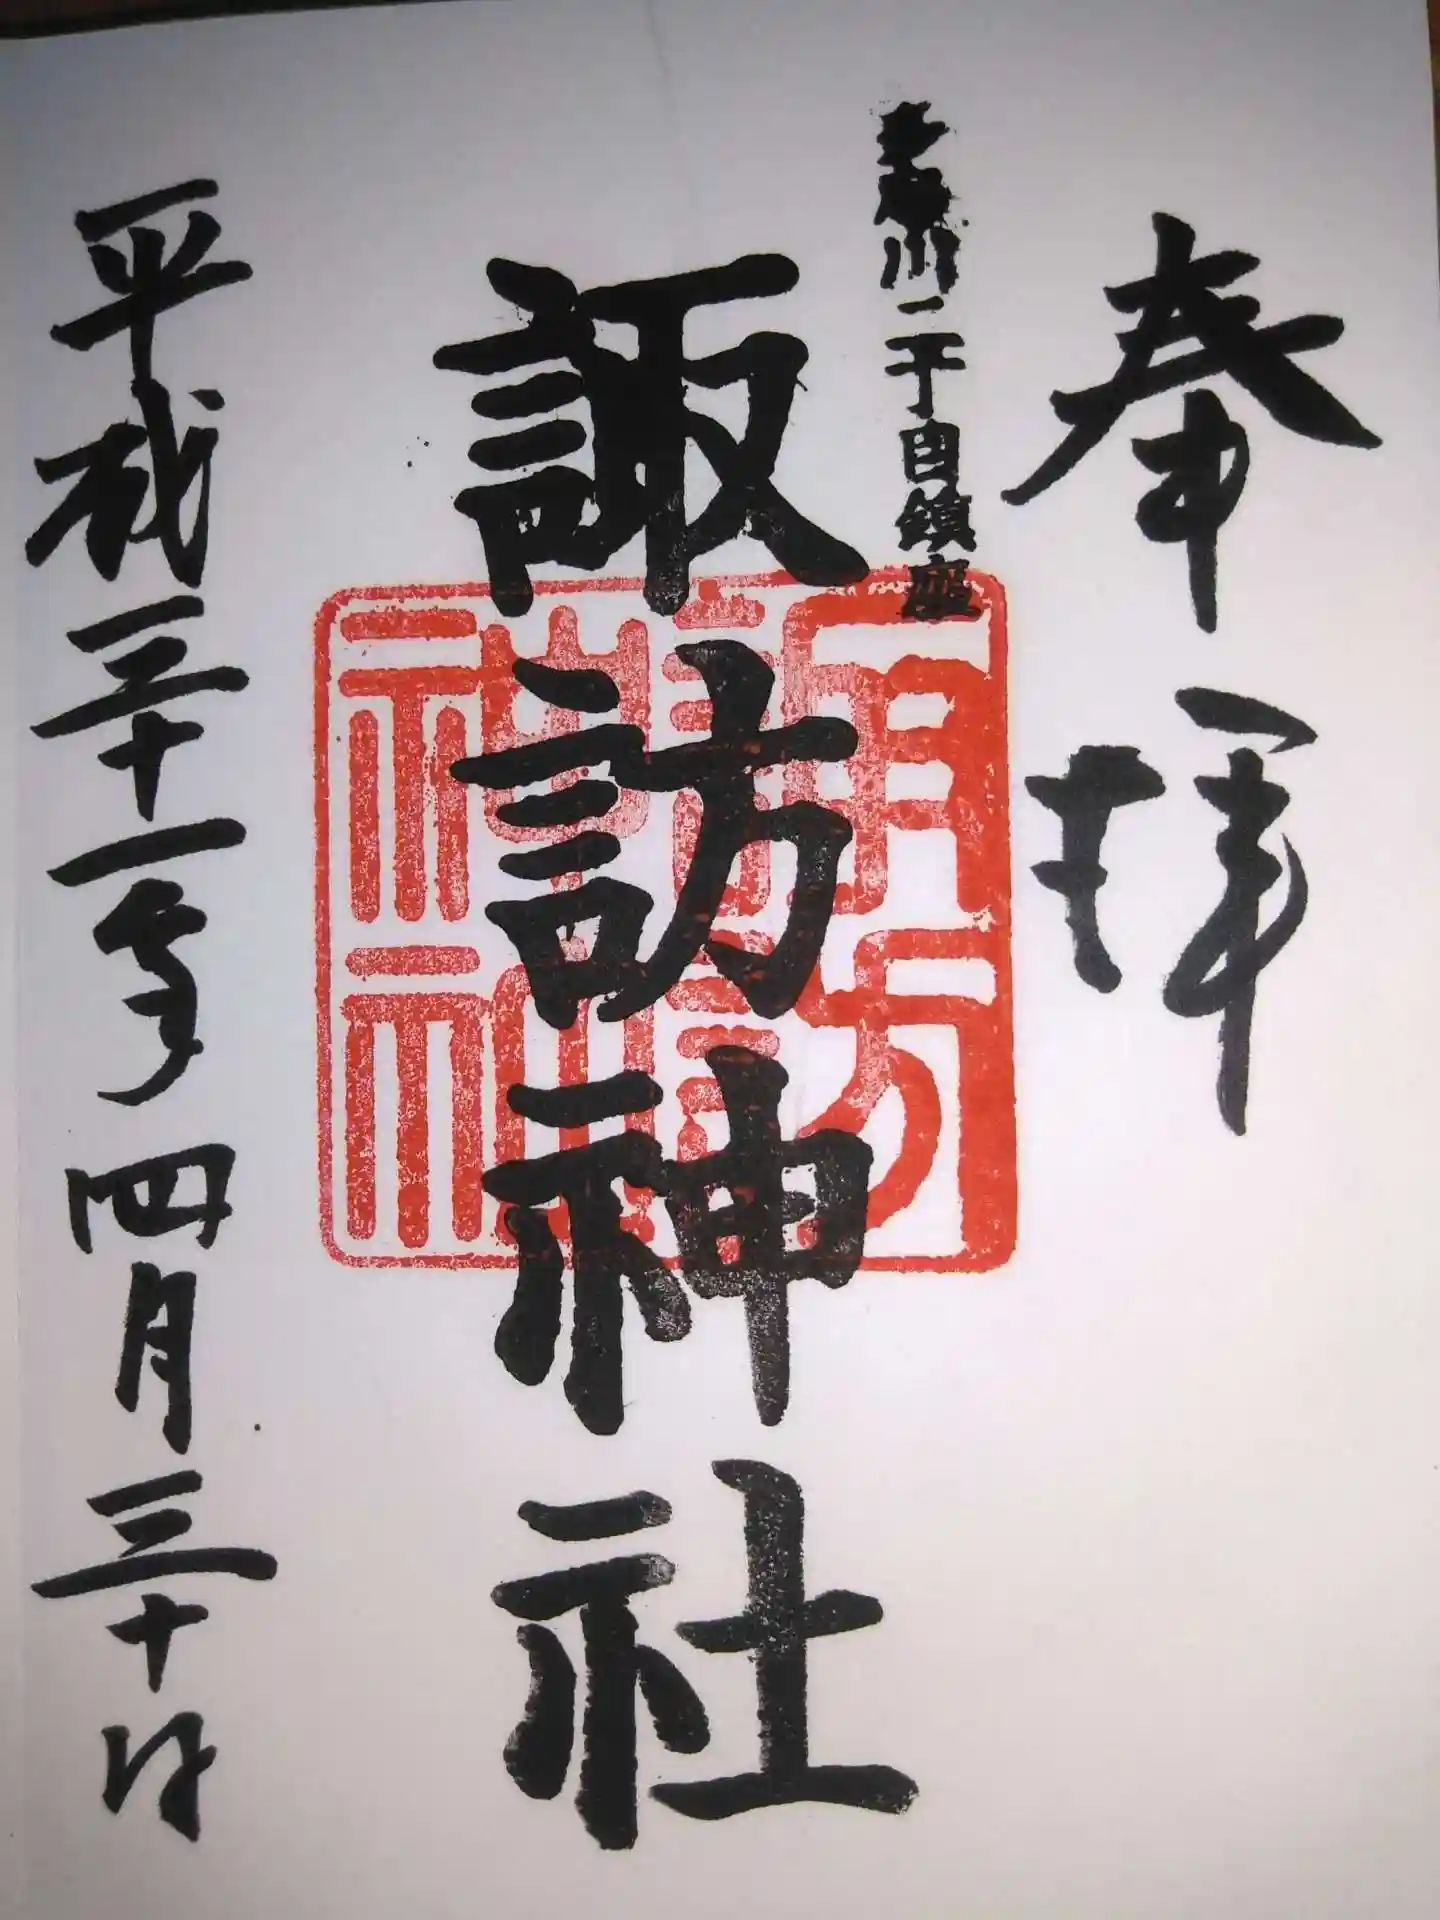 奉拝
多摩川二丁目鎮座
諏訪神社
諏訪
神社
平成三十一年四月三十日